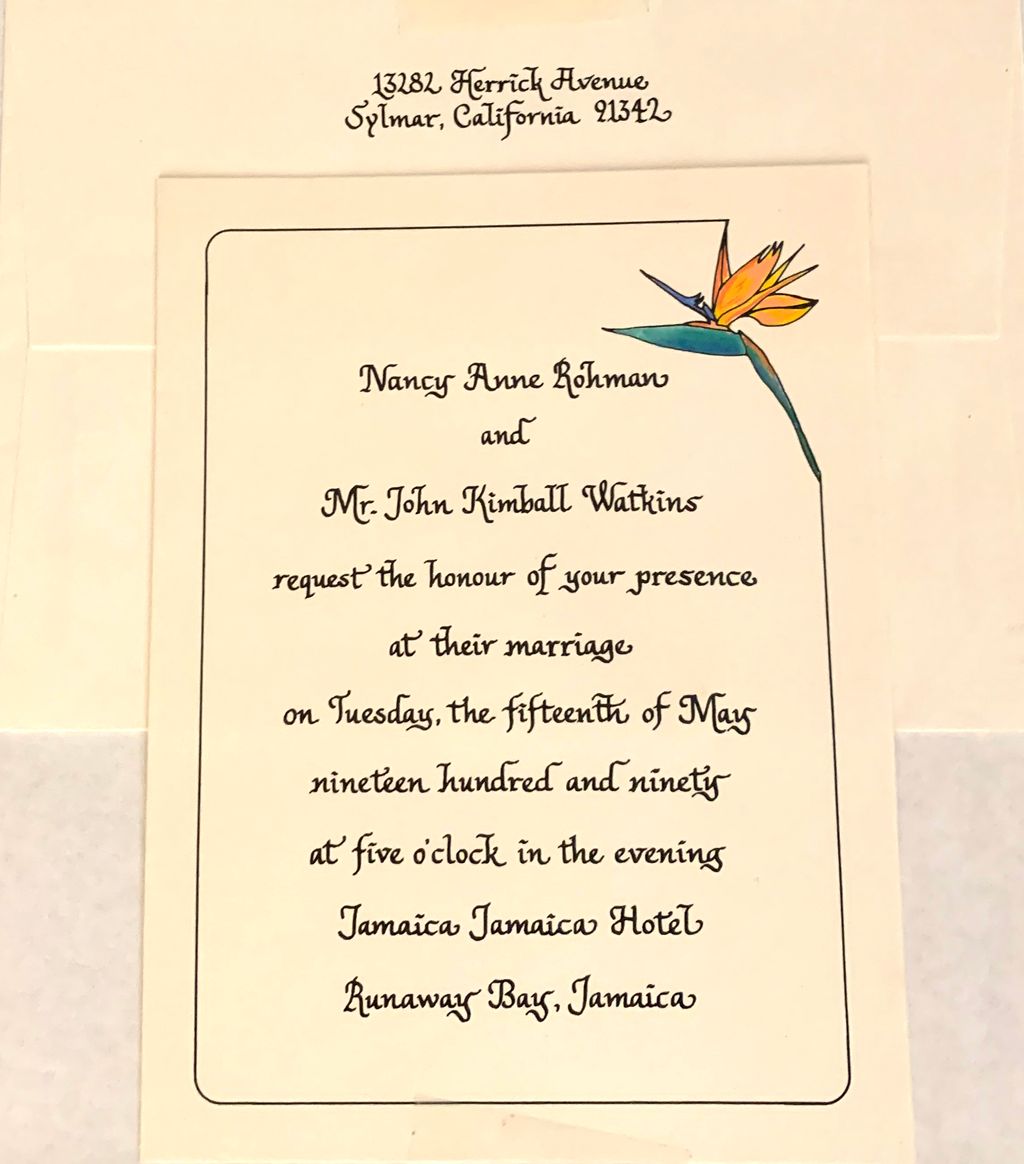 13282 Herrick Avenue
Sylmar, California 91342
Nancy Anne Rohman
and
Mr. John Kimball Watkins
request the honour of your presence
at their marriage
on Tuesday, the fifteenth of May
nineteen hundred and ninety
at five o'clock in the evening
Jamaica Jamaica Hotel
Runaway Bay, Jamaica